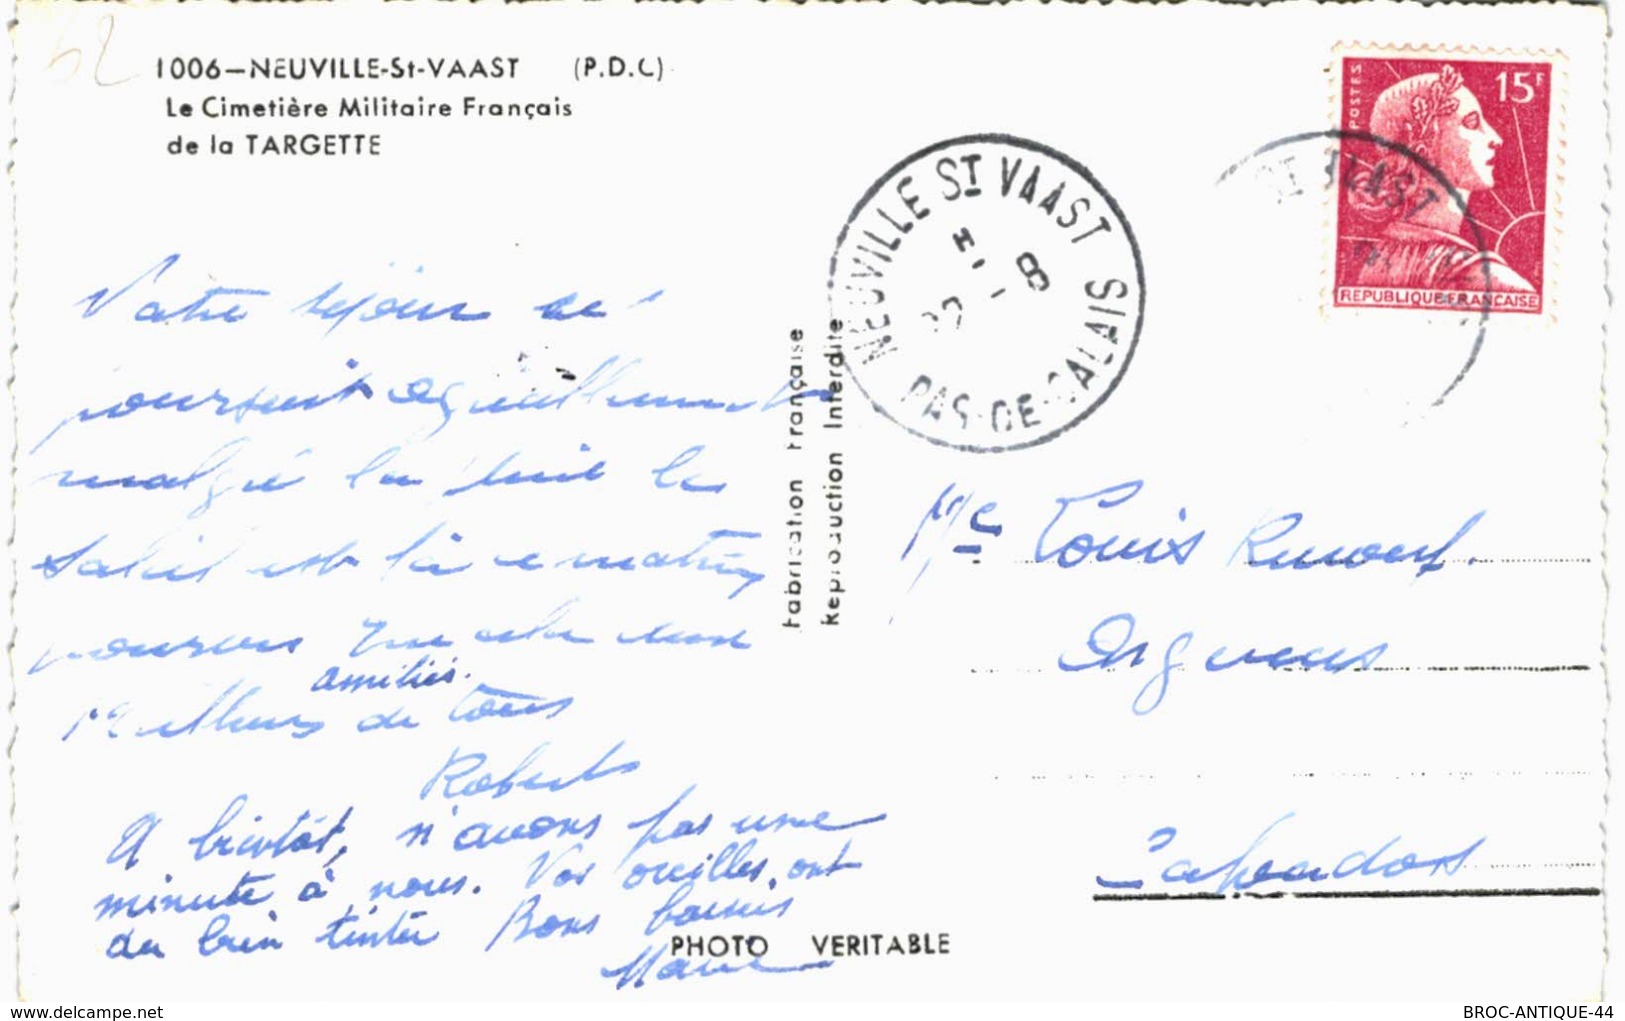 1006-NEUVILLE-St-VAAST (P.D.C)
Le Cimetière Militaire Français
de la TARGETTE
15F
POSTES
REPUBLIQUE FRANCAISE
NEUVILLE ST VAAST
8
PAS-DE-CALAIS
Fabrication Française
Reproduction Interdite
Notre séjour se
poursuit agréablement
malgré la pluie le
soleil est là ce matin
pourvu que cela dure
amitiés.
Meilleurs de tous
Robert
A bientôt, n'avons pas une
minute à nous. Vos oreilles ont
du bien tinter Bons baisers
Marie
Me Louis
Orgueus
Calvados
PHOTO VERITABLE
www.delcampe.net
BROC-ANTIQUE-44